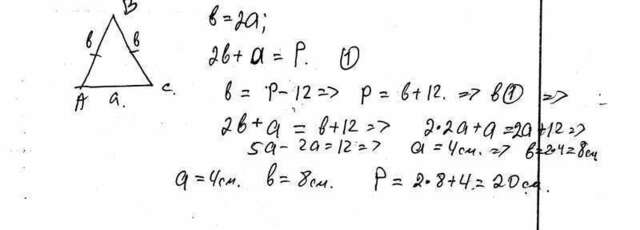 B
в=2a;
в в
2в+a=P. ①
A a. C.
в = P-12 => P = в+12. => в ① =>
2в+a = в+12 => 2·2a+a=2a+12 =>
5a-2a=12 => a=4см. => в=2·4=8см
a=4см. в=8см. P=2·8+4=20см.